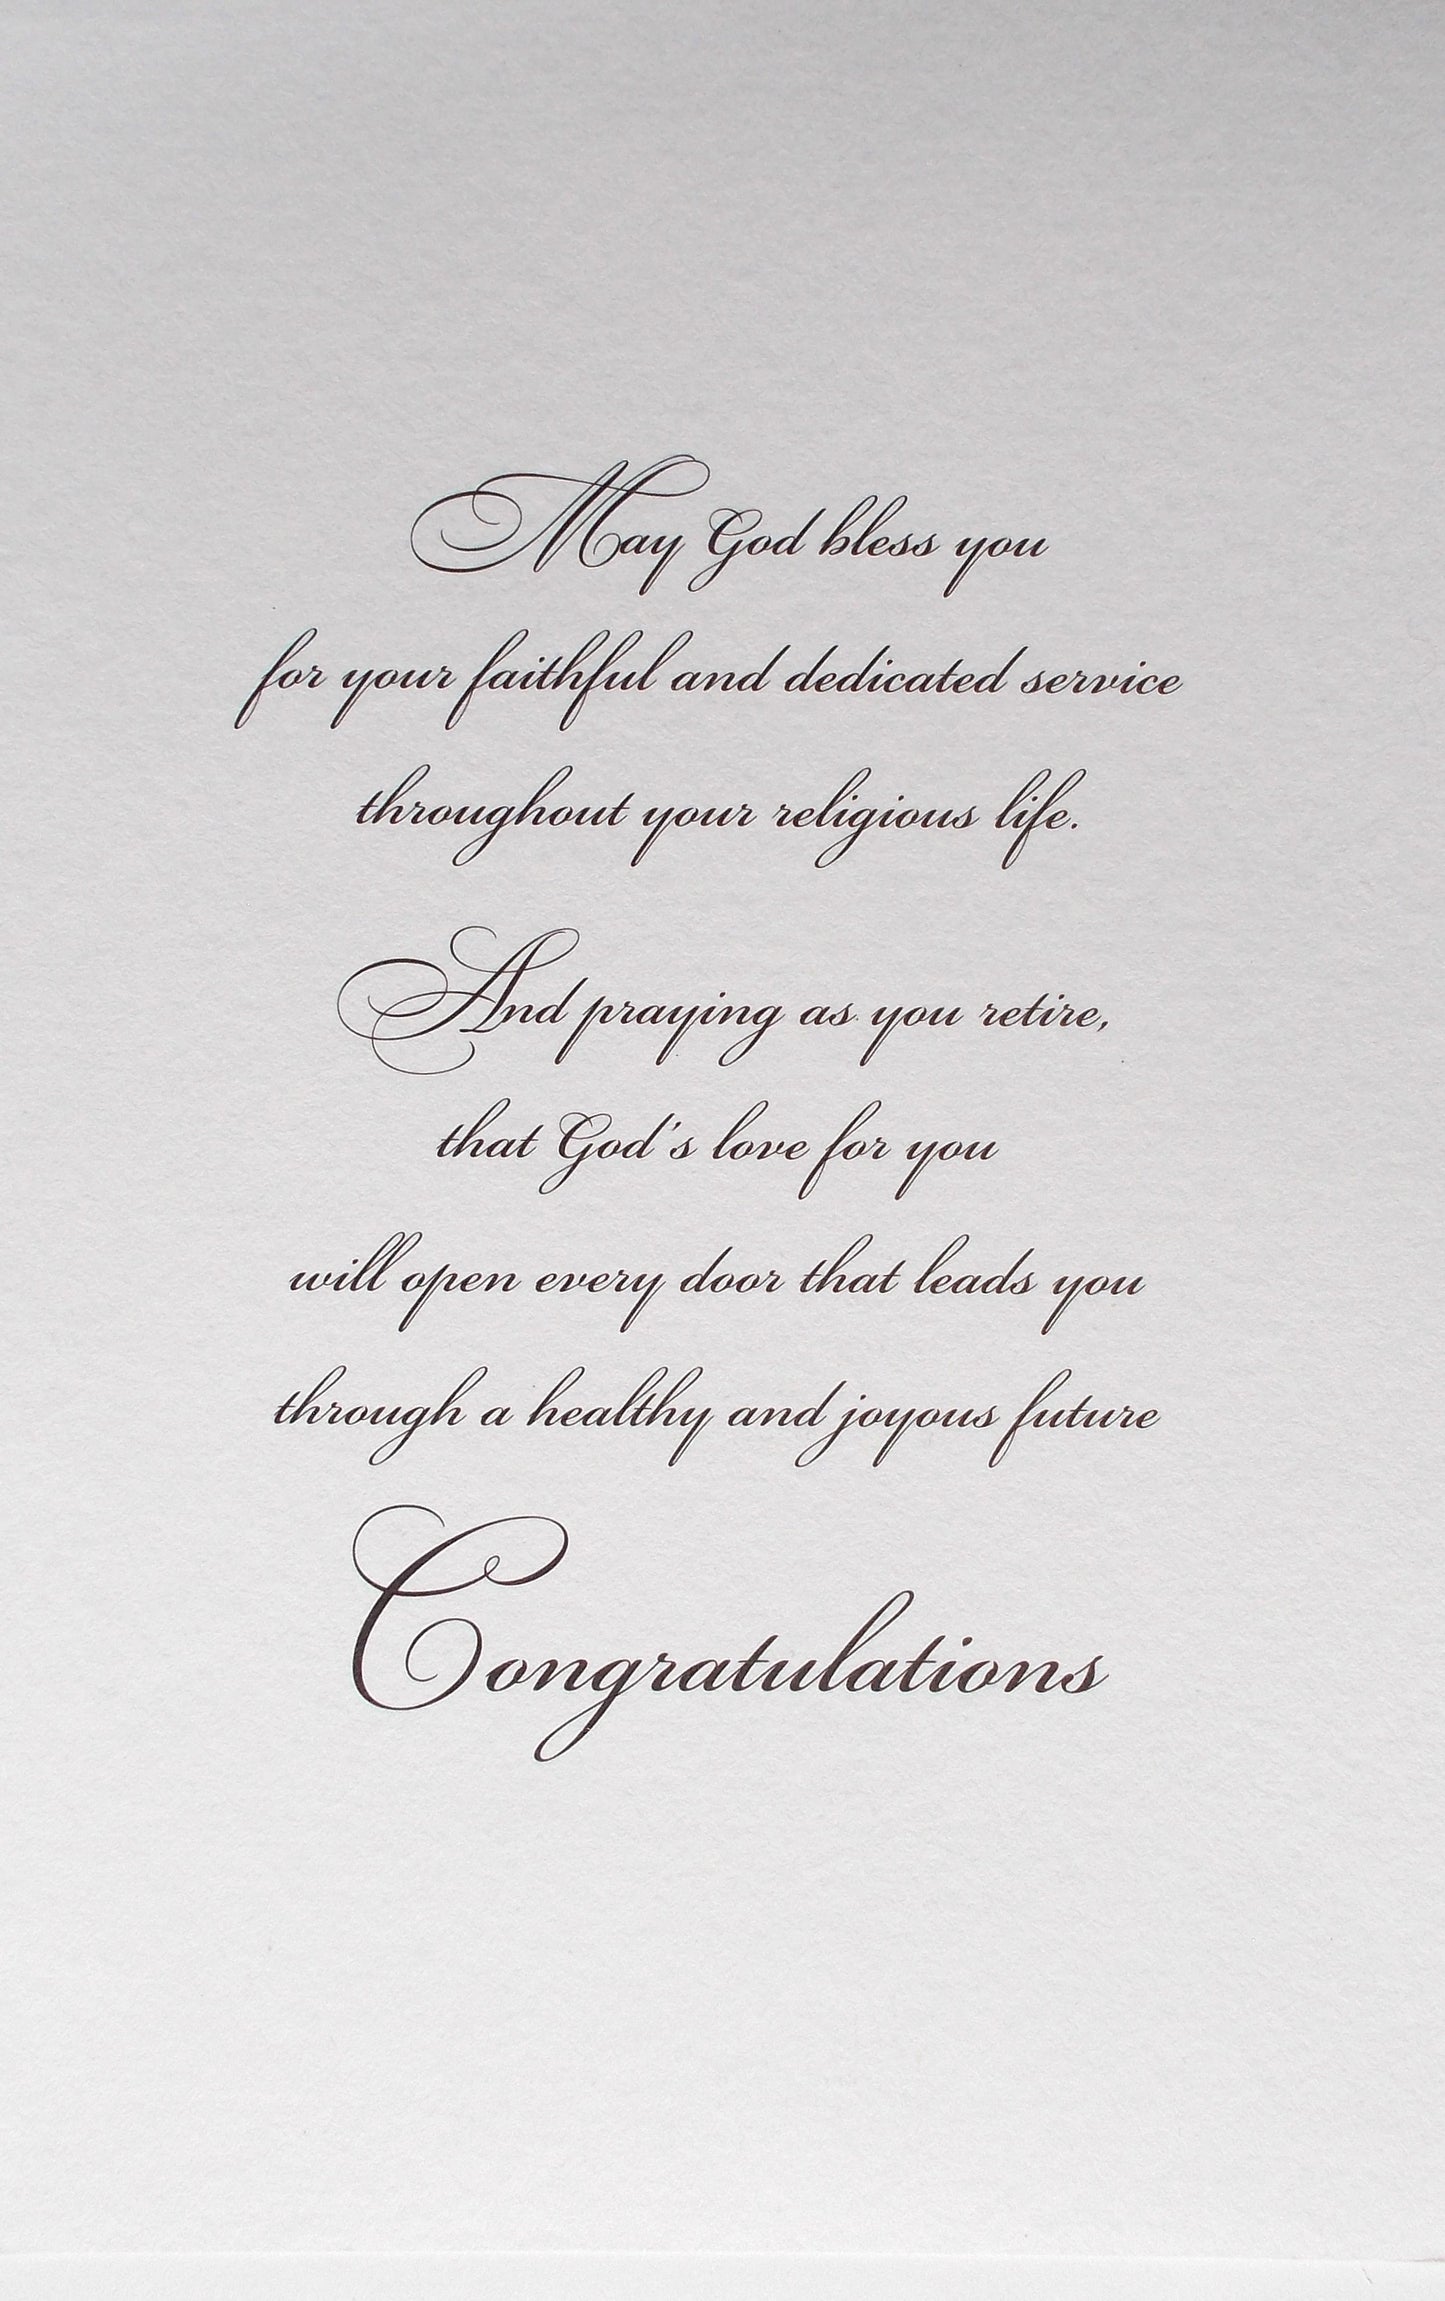 May God bless you
for your faithful and dedicated service
throughout your religious life.
And praying as you retire,
that God's love for you
will open every door that leads you
through a healthy and joyous future
Congratulations